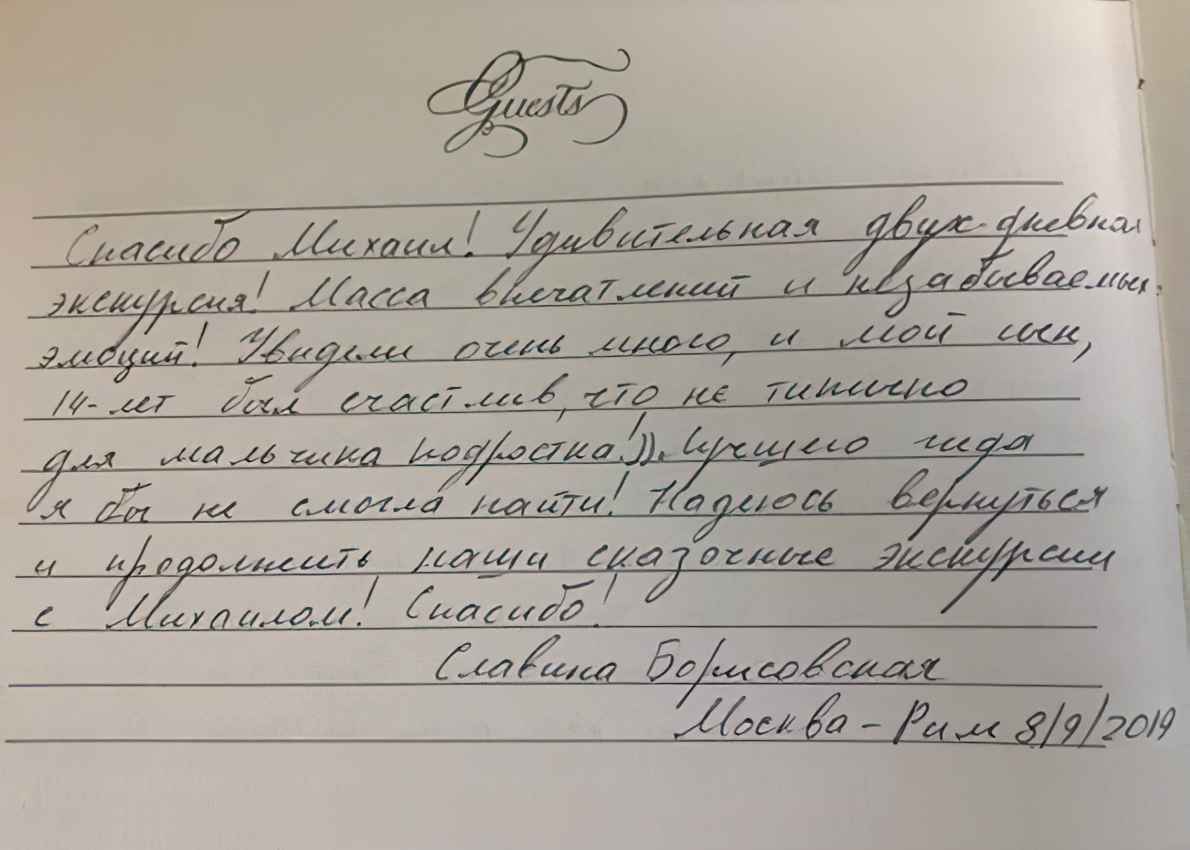 Guests
Спасибо Михаил! Удивительная двух-дневная
экскурсия! Масса впечатлений и незабываемых
эмоций! Увидели очень много, и мой сын,
14-лет был счастлив, что не типично
для мальчика подростка!)). Лучшего гида
я бы не смогла найти! Надеюсь вернуться
и продолжить наши сказочные экскурсии
с Михаилом! Спасибо!
Славина Борисовская
Москва - Рим 8/9/2019